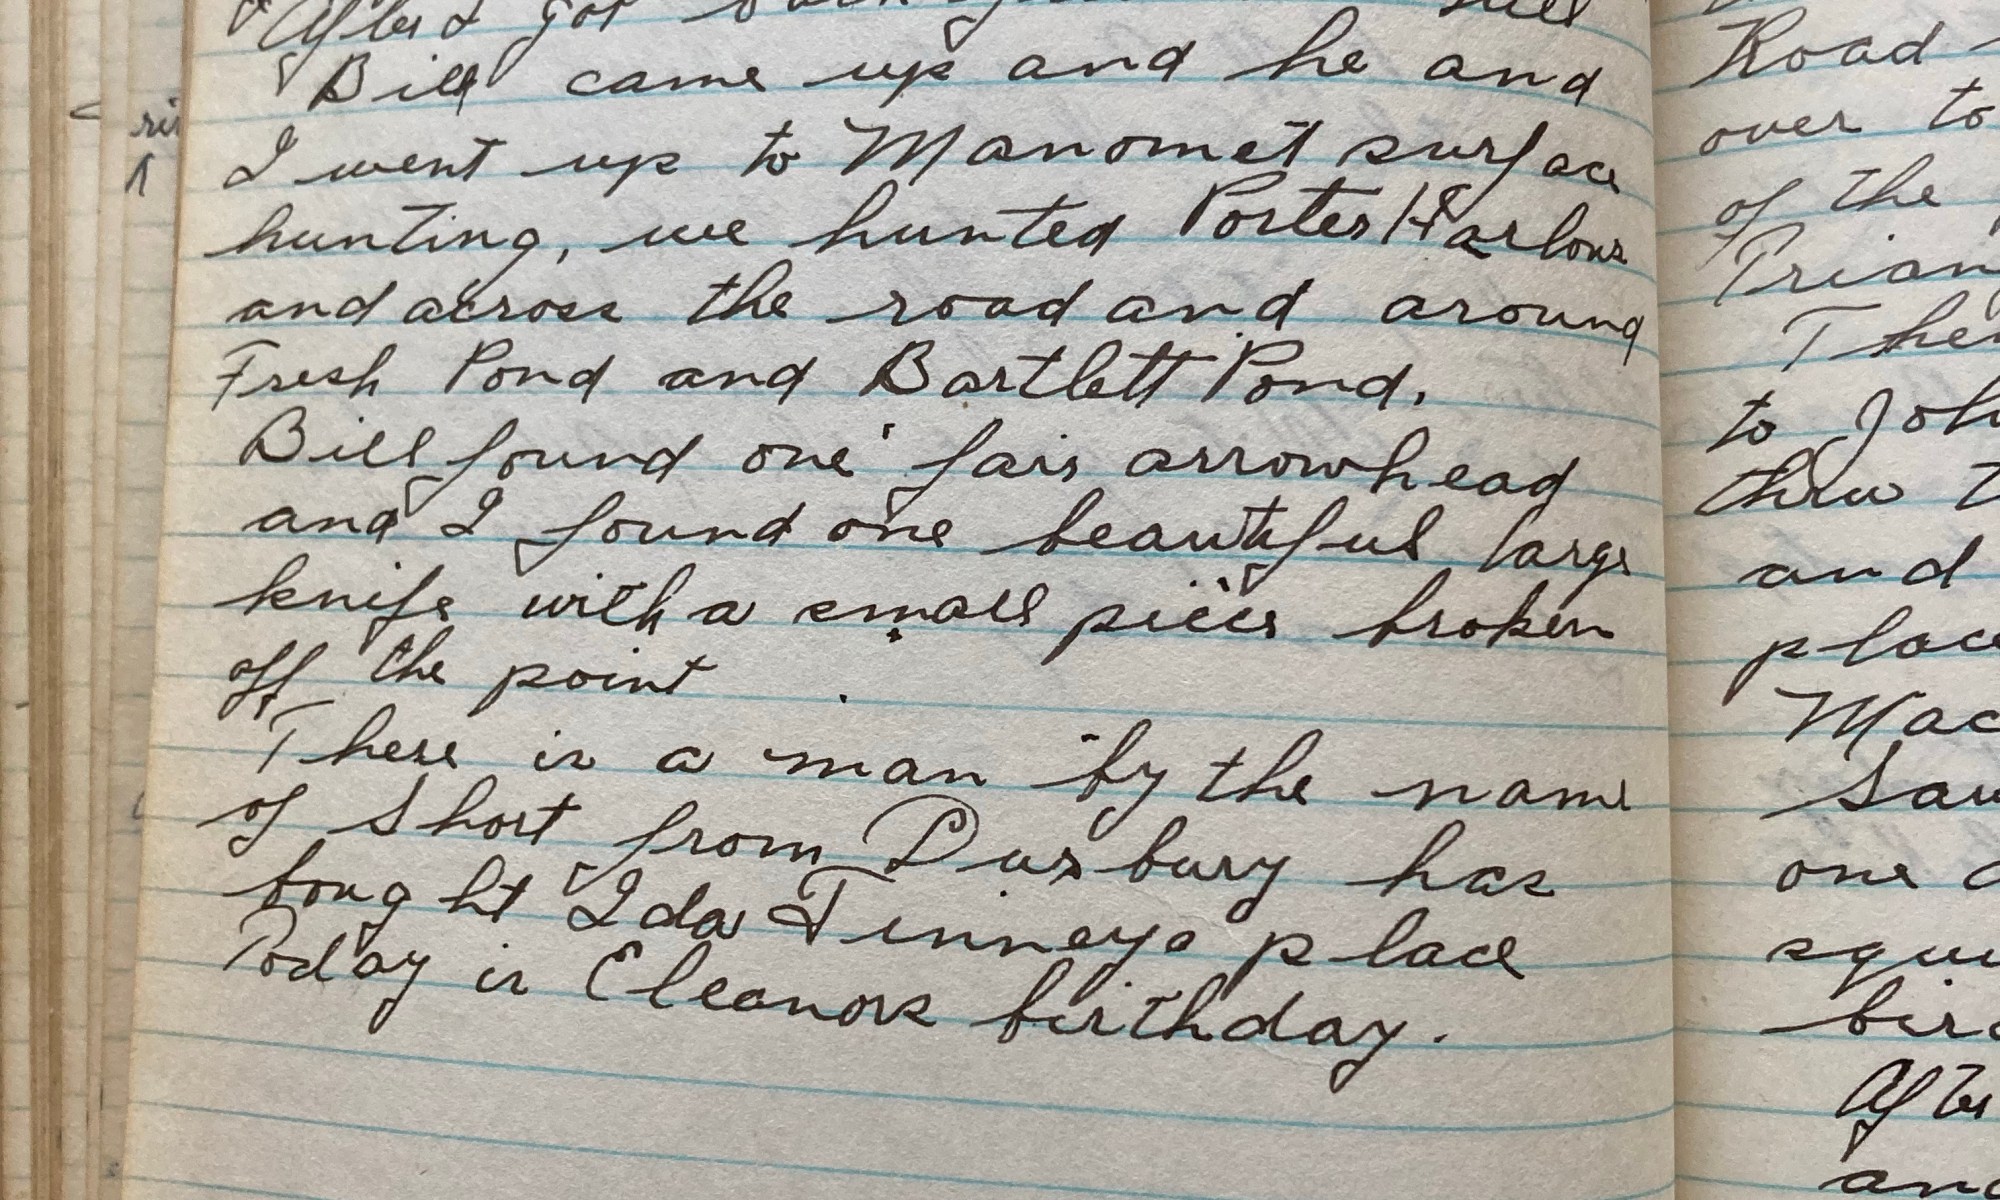 After I got
Bill came up and he and
I went up to Manomet surface
hunting, we hunted Porter Harlows
and across the road and around
Fresh Pond and Bartlett Pond.
Bill found one fair arrowhead
and I found one beautiful large
knife with a small piece broken
off the point
There is a man by the name
of Short from Duxbury has
bought Ida Finneys place
Today is Eleanors birthday.
Road
over to
of the
Then
to
thru
and
place
one
After
and